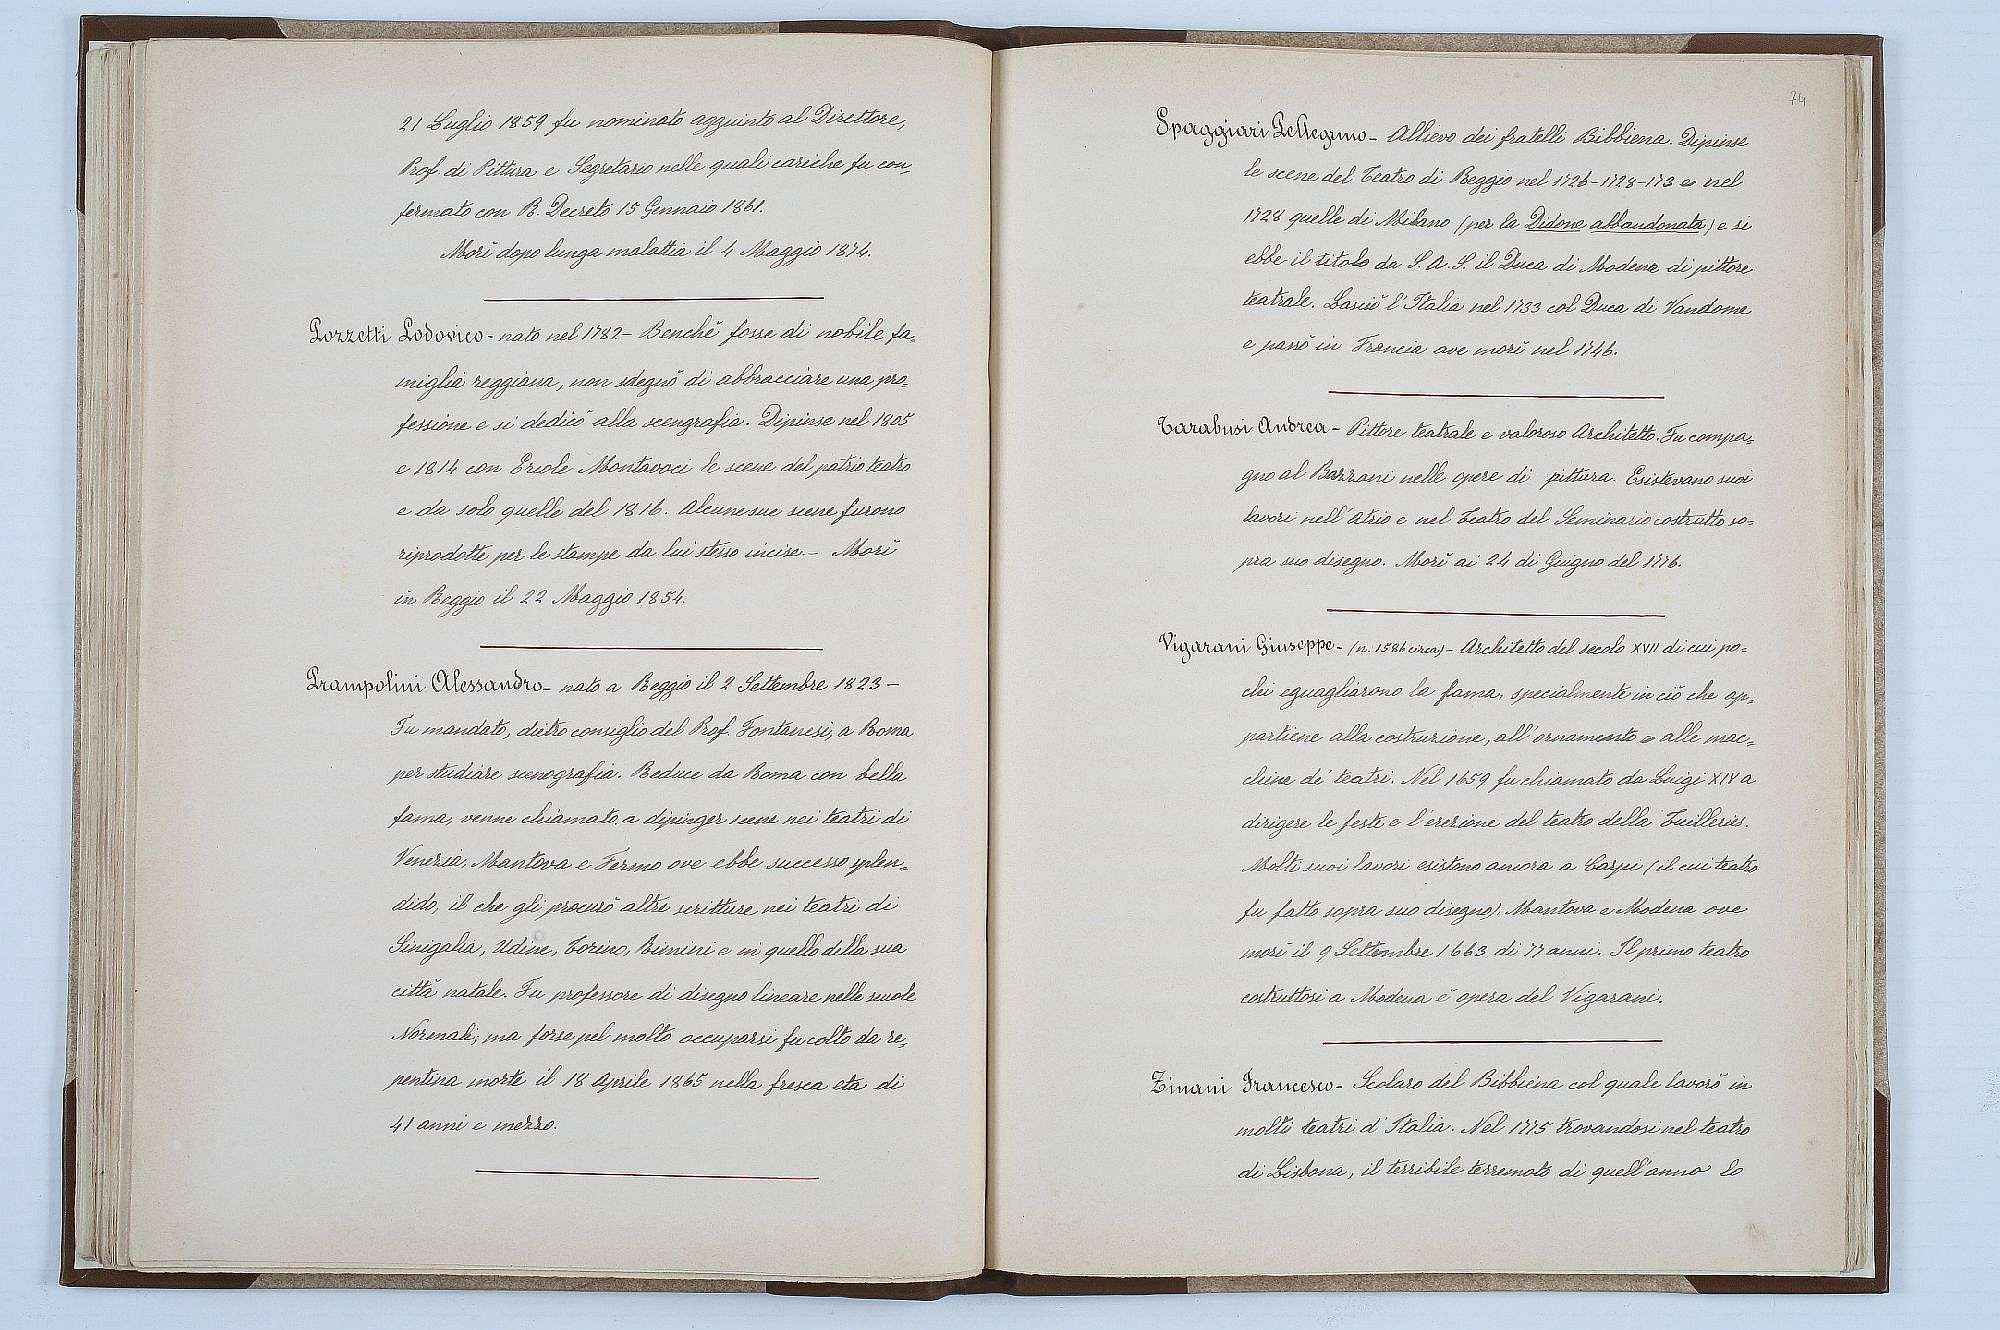 21 Luglio 1859 fu nominato aggiunto al Direttore,
Prof. di Pittura e Segretario nelle quali cariche fu con-
fermato con R. Decreto 15 Gennaio 1861.
Morì dopo lunga malattia il 4 Maggio 1874.
Pozzetti Lodovico - nato nel 1782 - Benchè fosse di nobile fa-
miglia reggiana, non sdegnò di abbracciare una pro-
fessione e si dedicò alla scengrafia. Dipinse nel 1805
e 1814 con Ercole Montavoci le scene del patrio teatro
e da solo quelle del 1816. Alcune sue scene furono
riprodotte per le stampe da lui stesso incise. - Morì
in Reggio il 22 Maggio 1854.
Prampolini Alessandro - nato a Reggio il 2 Settembre 1823 -
Fu mandato, dietro consiglio del Prof. Fontanesi, a Roma
per studiare scenografia. Reduce da Roma con bella
fama, venne chiamato a dipinger scene nei teatri di
Venezia, Mantova e Fermo ove ebbe successo splen-
dido, il che gli procurò altre scritture nei teatri di
Sinigalia, Udine, Torino, Rimini e in quello della sua
città natale. Fu professore di disegno lineare nelle scuole
Normali; ma forse pel molto occuparsi fu colto da re-
pentina morte il 18 Aprile 1865 nella fresca età di
41 anni e mezzo.
74
Spaggiari Pellegrino - Allievo dei fratelli Bibbiena. Dipinse
le scene del Teatro di Reggio nel 1726-1728-173 e nel
1728 quelle di Milano (per la Didone abbandonata) e si
ebbe il titolo da S. A. S. il Duca di Modena di pittore
teatrale. Lasciò l'Italia nel 1733 col Duca di Vandome
e passò in Francia ove morì nel 1746.
Tarabusi Andrea - Pittore teatrale e valoroso Architetto. Fu compa-
gno al Bazzani nelle opere di pittura. Esistevano suoi
lavori nell'Atrio e nel Teatro del Seminario costrutto so-
pra suo disegno. Morì ai 24 di Giugno del 1776.
Vigarani Giuseppe - (n. 1586 circa) - Architetto del secolo XVII di cui po-
chi eguagliarono la fama, specialmente in ciò che ap-
partiene alla costruzione, all'ornamento e alle mac-
chine de' teatri. Nel 1659 fu chiamato da Luigi XIV a
dirigere le feste e l'erezione del teatro della Tuilleries.
Molti suoi lavori esistono ancora a Carpi (il cui teatro
fu fatto sopra suo disegno), Mantova e Modena ove
morì il 9 Settembre 1663 di 77 anni. Il primo teatro
costruttosi a Modena è opera del Vigarani.
Zinani Francesco - Scolaro del Bibbiena col quale lavorò in
molti teatri d'Italia. Nel 1775 trovandosi nel teatro
di Lisbona, il terribile terremoto di quell'anno lo